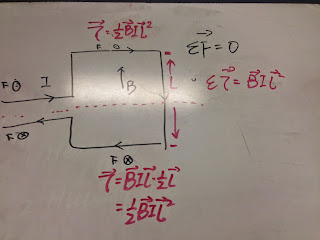 τ⃗ = ½B⃗Il⃗²
F ⊙
ΣF⃗ = 0
F ⊙ I
B
L
Στ⃗ = B⃗Il⃗²
F ⊗
F ⊗
τ⃗ = B⃗Il⃗·½l⃗
= ½B⃗Il⃗²